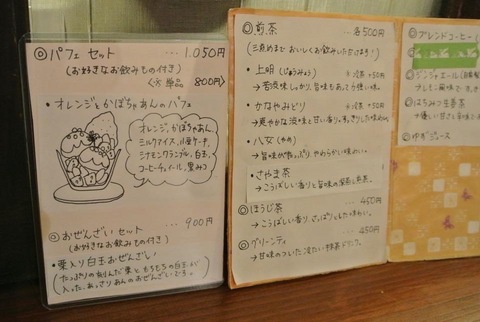 ◎パフェ セット … 1.050円
(お好きなお飲みもの付き)
単品 800円
・オレンジとかぼちゃあんのパフェ
オレンジ、かぼちゃあん、
ミルクアイス、小豆ケーキ、
シナモンクランブル、白玉、
コーヒーチュイール、黒みつ
… 900円
◎おぜんざい セット
(お好きなお飲みもの付き)
・栗入り白玉おぜんざい
(たっぷりの刻んだ栗ともちもちの白玉が
入った、あっさりあんのおぜんざいです。)
◎煎茶 … 各500円
(三煎めまでおいしくお飲みいただけます!)
・上明(じょうみょう) 冷茶 +50円
→苦渋味しっかり、旨味もあって力強い味。
・かなやみどり 冷茶 +50円
→爽やかな渋味と甘い香り。すっきりした味わい。
・八女(やめ)
→旨味が
やわらかい味わい。
・さやま茶
→こうばしい香りと旨味の
◎ほうじ茶 … 450円
→こうばしい香り、さっぱりした味わい。
◎グリーンティ 450円
→甘味のついた冷たい抹茶ドリンク。
◎ブレンドコーヒー
◎ジンジャエール(自家製
◎はちみつ生姜茶
→優しい甘さと
◎ゆずジュース